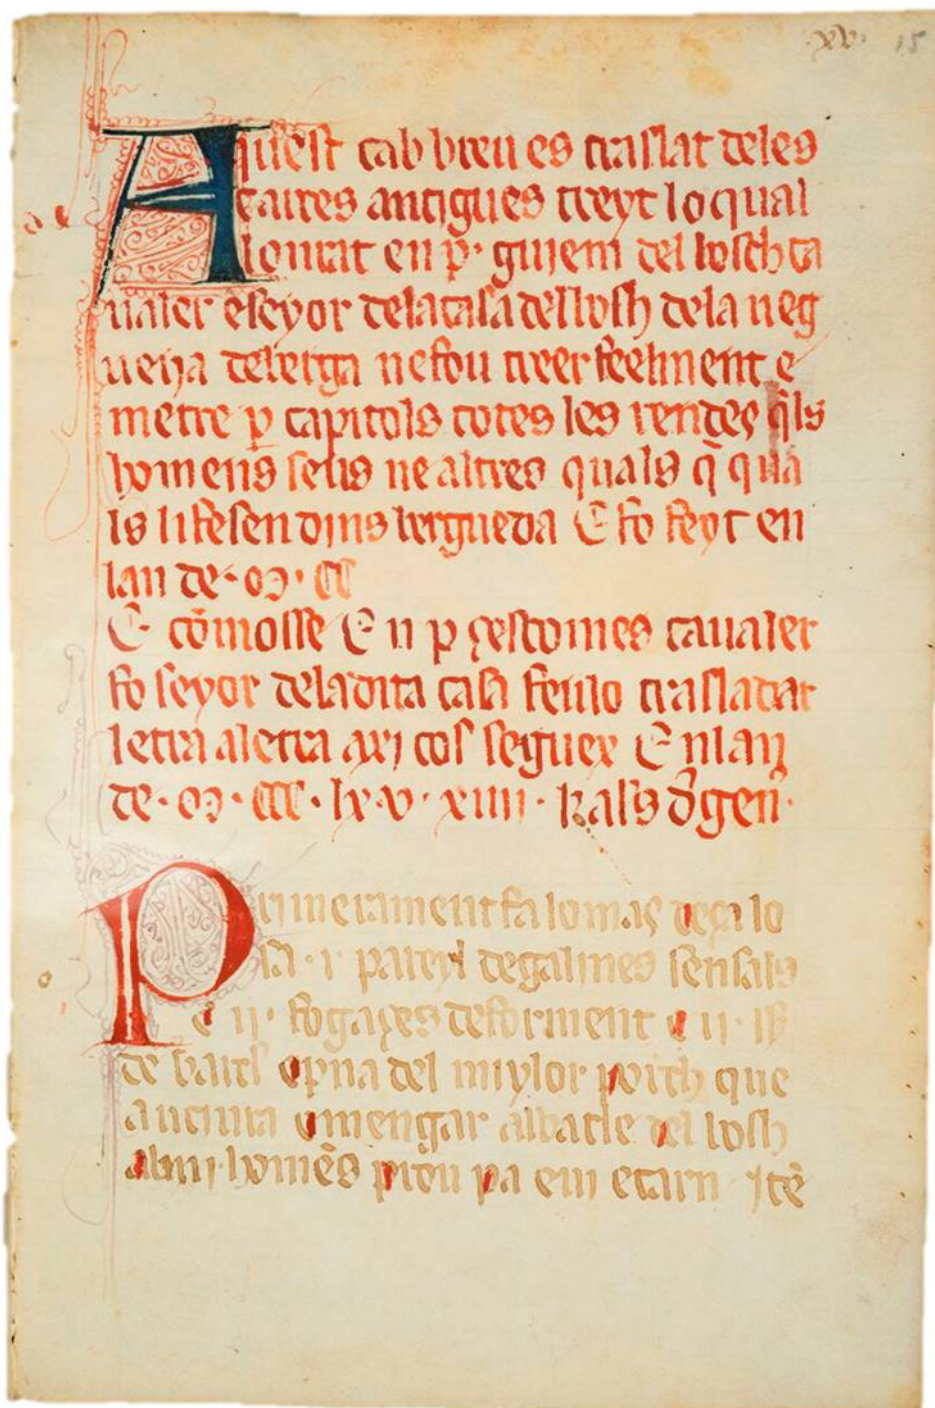 .xv. 15
Aquest cab breu es traslat deles
cartes antigues treyt lo qual
lonrat en p. guiem del bosch ca
ualer eseyor delacasa delbosh dela neg
ueya deberga nefou treer feelment e
metre p capitols totes les rendes q̄ls
homens seus ne altres quals q̄ qua
ls li fesen dins bergueda E fo feyt en
lan de · M · CC
E cōmosse En p çescomes caualer
fo seyor deladita casa feulo trasladar
letra aletra axi cos seguex Enlan
de · M · CCC · lxv · xiiii · kals d gen
Primerament fa lomas deça lo
sa · i pareyl degalines sensals
e ii · fogaçes deforment e ii ·
de epna del miylor porch que
auciura emengar albatle del bosh
abiii homēs